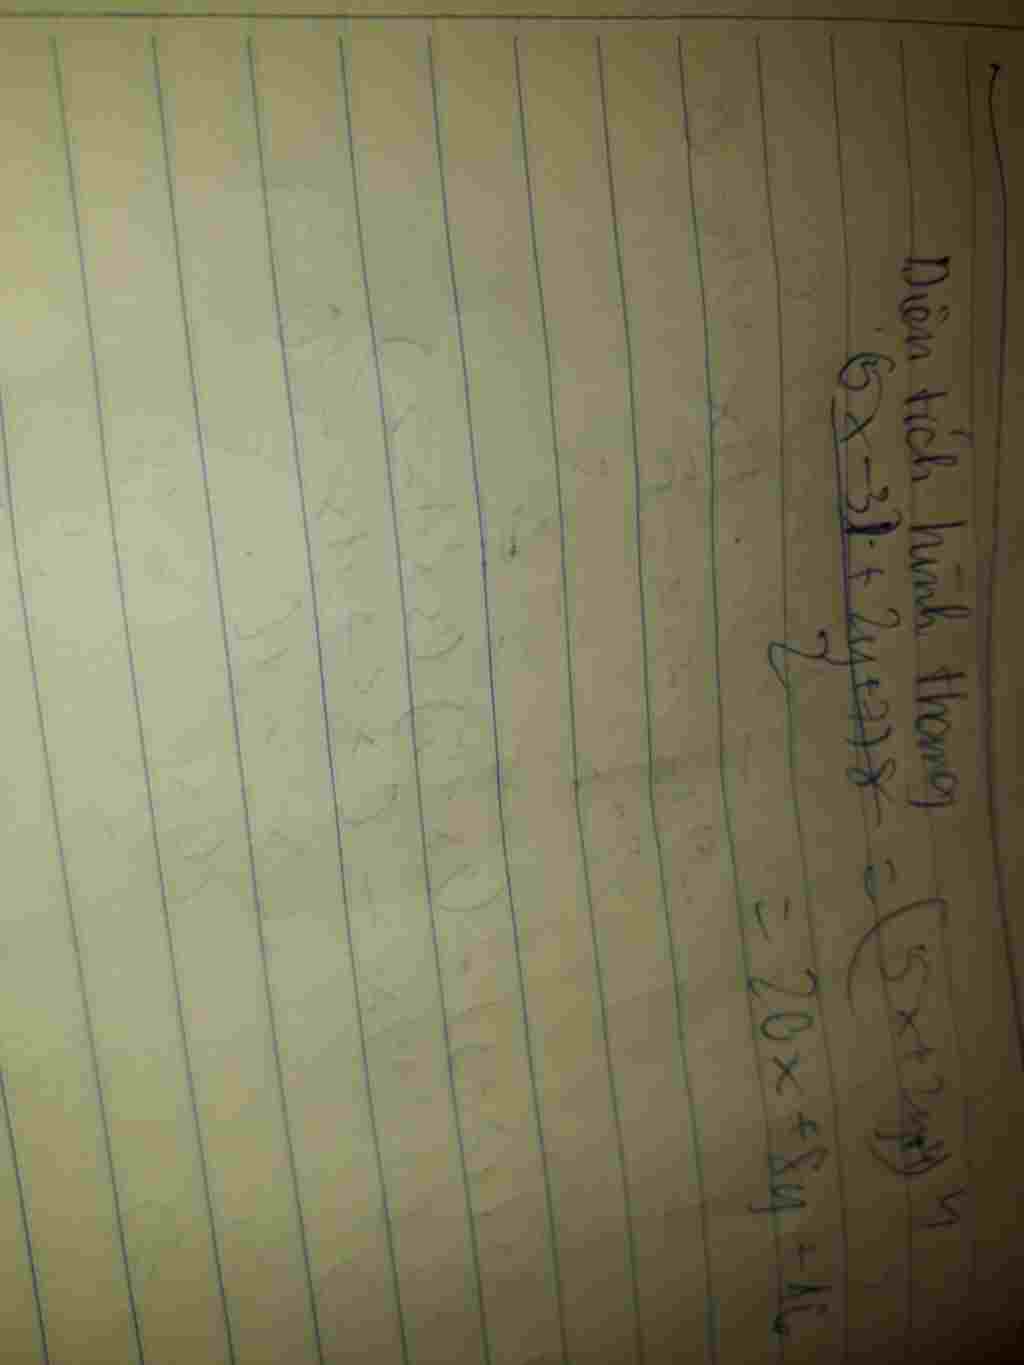 Diện tích hình thang
5x-3y + 2y+7).8 = (5x+2y+4) 4
2
= 20x + 8y - 16